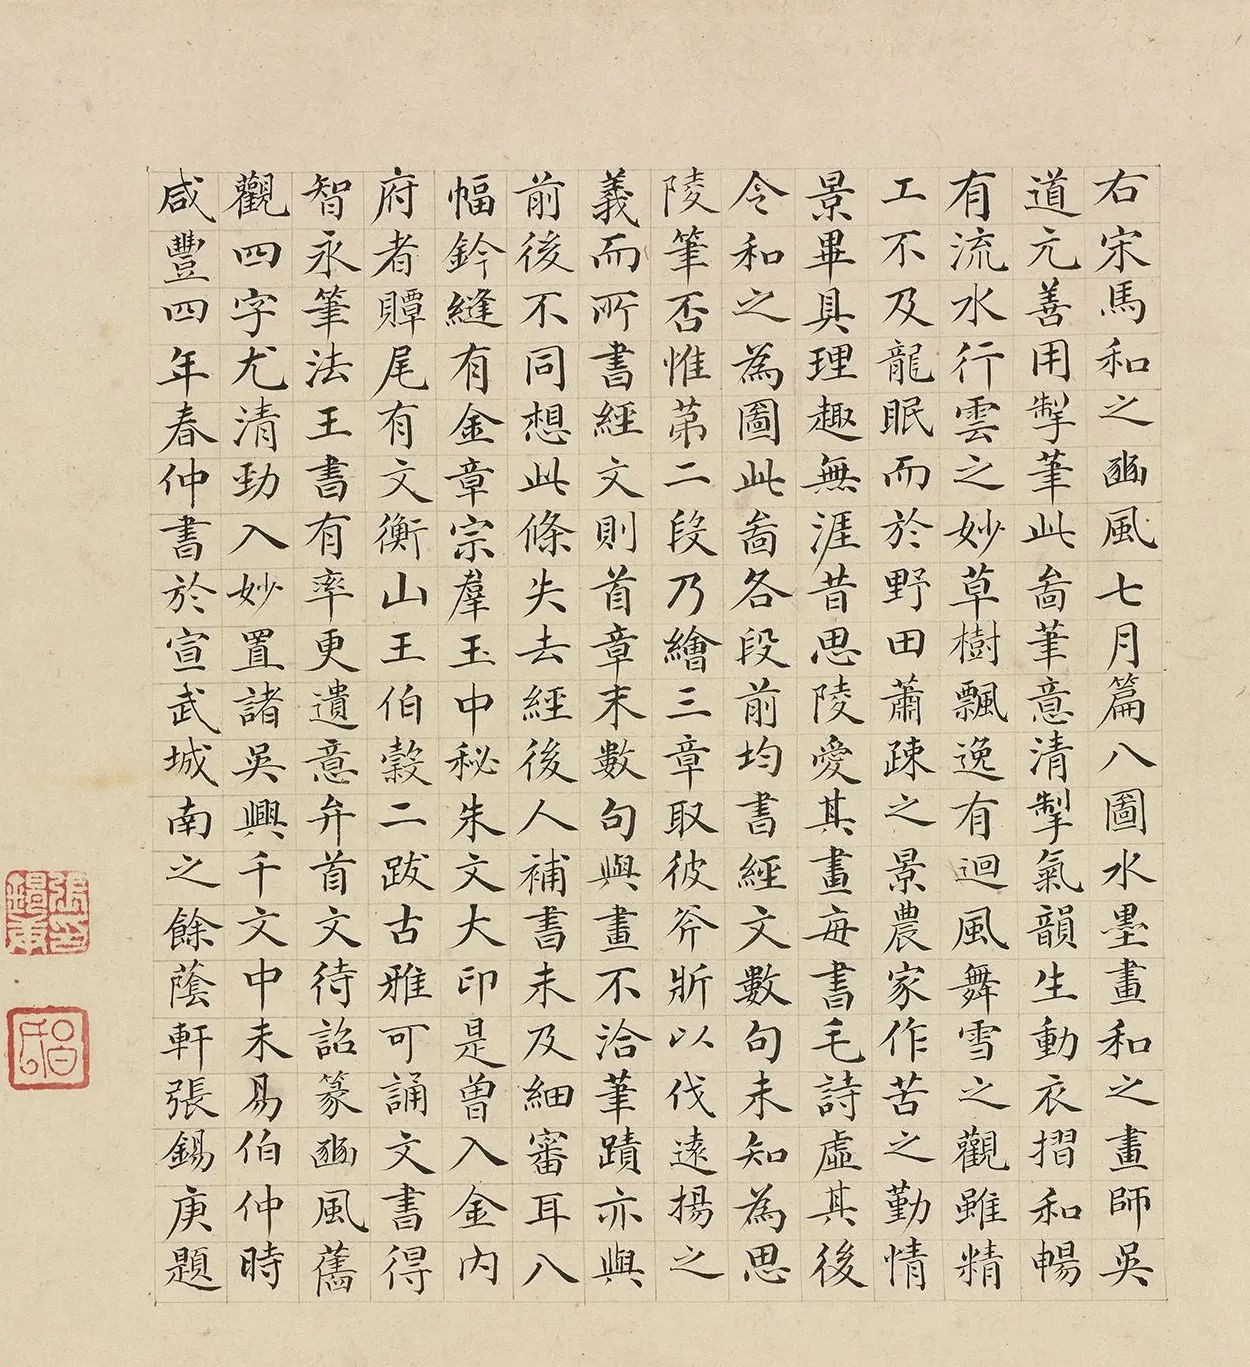 右宋馬和之豳風七月篇八圖水墨畫和之畫師吳
道元善用掣筆此啚筆意清掣氣韻生動衣摺和暢
有流水行雲之妙草樹飄逸有迴風舞雪之觀雖精
工不及龍眠而於野田蕭疎之景農家作苦之勤情
景畢具理趣無涯昔思陵愛其畫每書毛詩虛其後
令和之為圖此啚各段前均書經文數句未知為思
陵筆否惟苐二段乃繪三章取彼斧斨以伐遠揚之
義而所書經文則首章末數句與畫不洽筆蹟亦與
前後不同想此條失去經後人補書未及細審耳八
幅鈐縫有金章宗羣玉中秘朱文大印是曾入金內
府者贉尾有文衡山王伯穀二跋古雅可誦文書得
智永筆法王書有率更遺意弁首文待詔篆豳風舊
觀四字尤清勁入妙置諸吳興千文中未易伯仲時
咸豐四年春仲書於宣武城南之餘蔭軒張錫庚題
張錫庚印